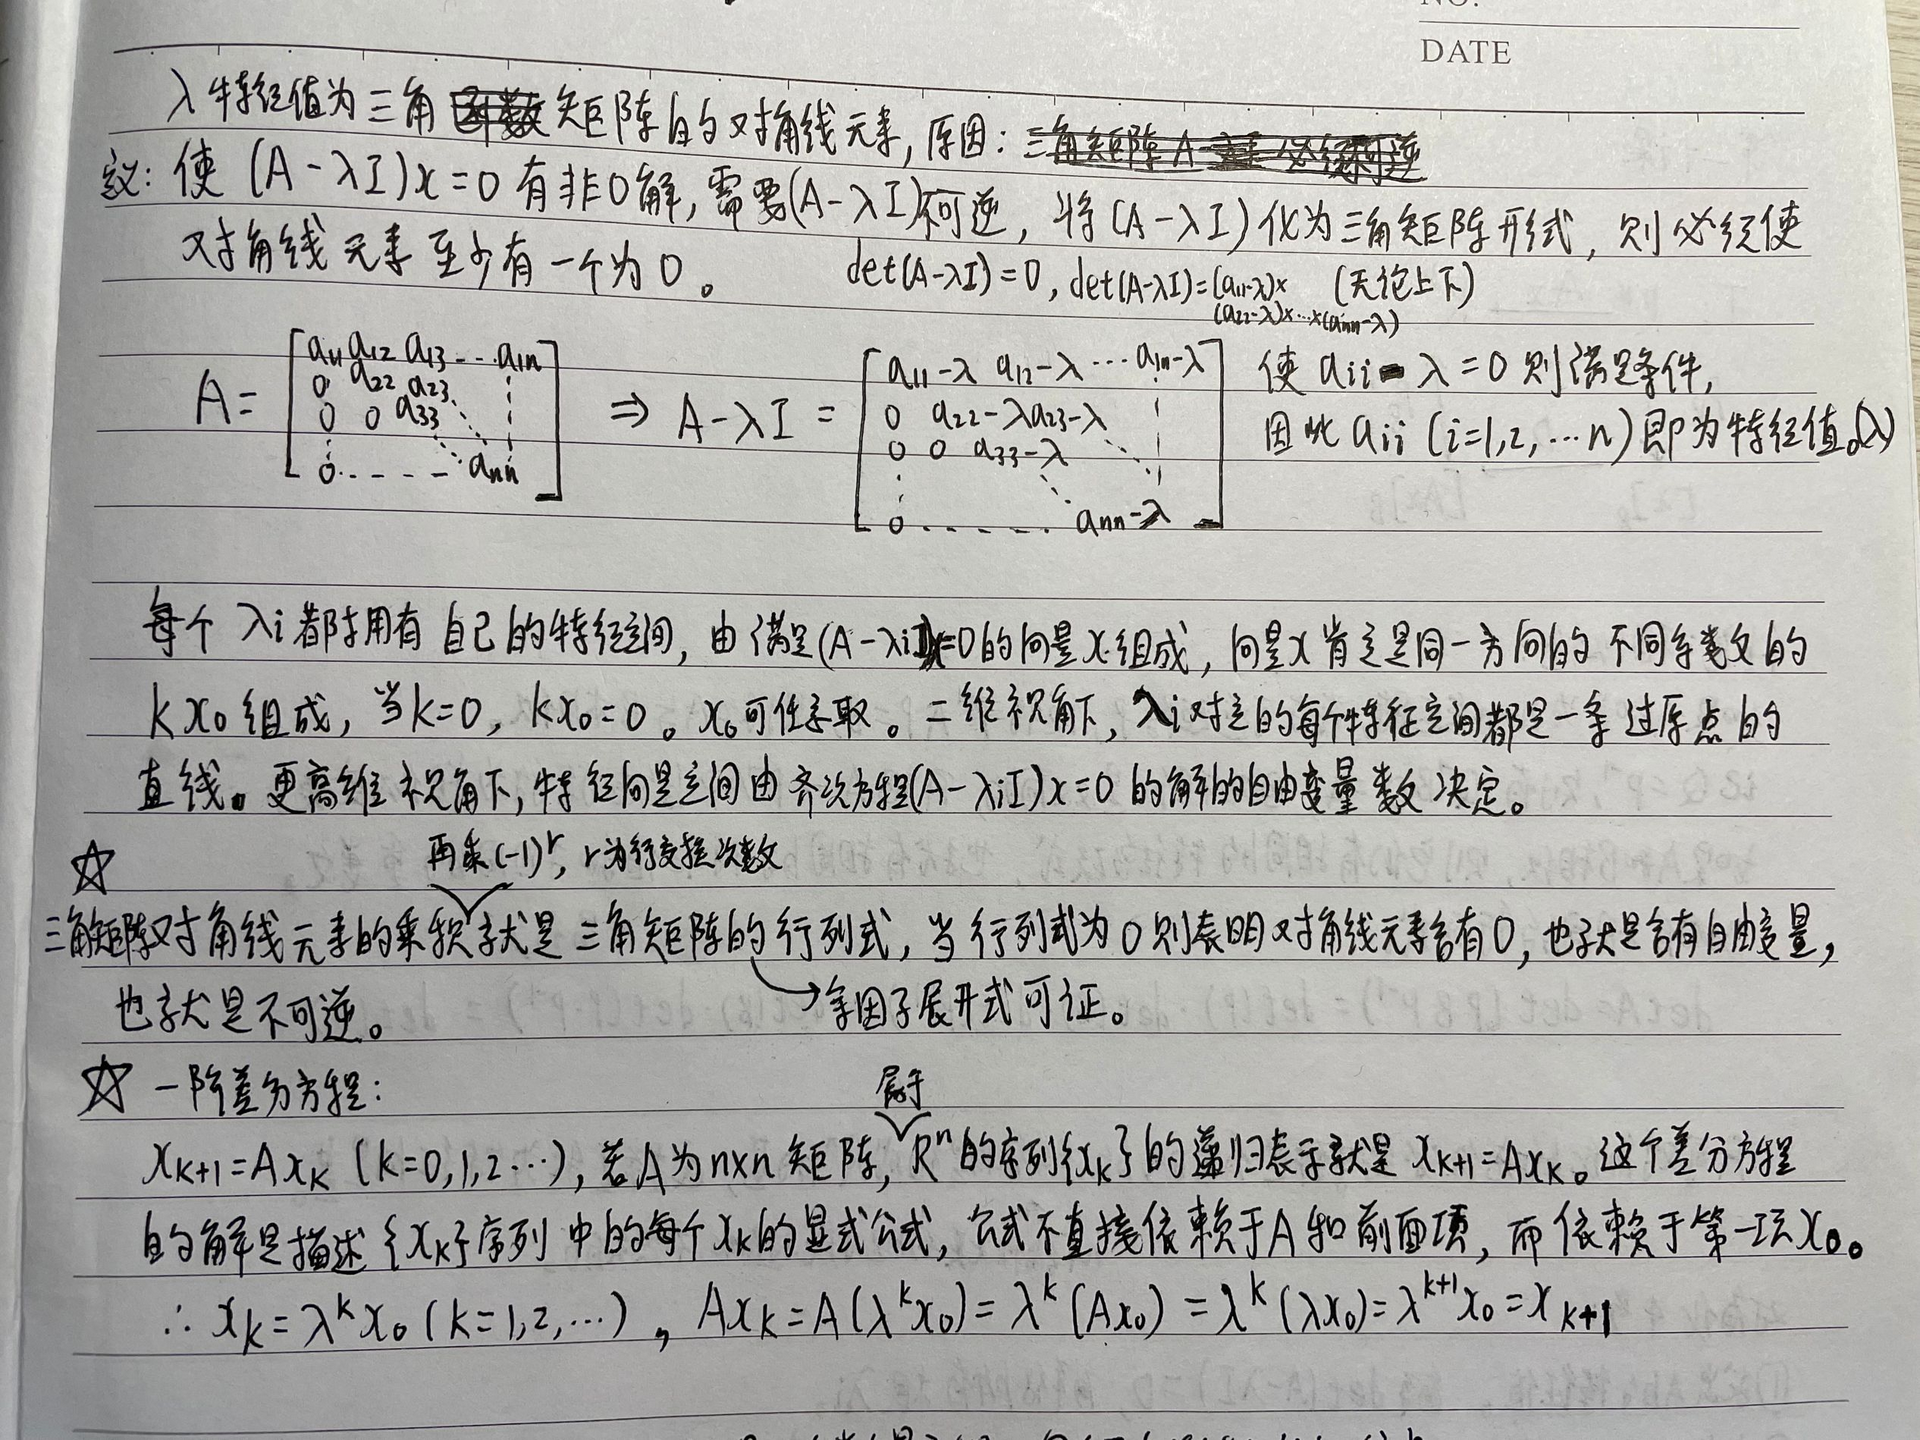 NO.
DATE
λ特征值为三角矩阵的对角线元素,原因:
议:使(A-λI)x=0有非0解,需要(A-λI)不可逆,将(A-λI)化为三角矩阵形式,则必须使
对角线元素至少有一个为0。 det(A-λI)=0, det(A-λI)=(a11-λ)× (无论上下)
(a22-λ)×…×(ann-λ)
A= [a11 a12 a13 --- a1n ⇒ A-λI = [a11-λ a12-λ … a1n-λ 使 aii-λ=0则满足条件,
0 a22 a23 0 a22-λ a23-λ 因此 aii (i=1,2,…n)即为特征值。(λ)
0 0 a33 0 0 a33-λ
0 ---- ann] 0 …… ann-λ]
每个λi都拥有自己的特征空间,由满足(A-λiI)x=0的向量x组成,向量x肯定是同一方向的不同系数的
kx0组成,当k=0, kx0=0。x0可任意取。二维视角下,λi对应的每个特征空间都是一条过原点的
直线。更高维视角下,特征向量空间由齐次方程(A-λiI)x=0的解的自由变量数决定。
☆ 再乘(-1)^r, r为行交换次数
三角矩阵对角线元素的乘积就是三角矩阵的行列式,当行列式为0则表明对角线元素含有0,也就是含有自由变量,
也就是不可逆。 →余因子展开式可证。
☆ 一阶差分方程: 属于
x_{k+1}=Ax_k (k=0,1,2…),若A为n×n矩阵, R^n的序列{x_k}的递归表示就是 x_{k+1}=Ax_k。这个差分方程
的解是描述{x_k}序列中的每个x_k的显式公式,公式不直接依赖于A和前面项,而依赖于第一项x0。
∴ x_k=λ^k x_0 (k=1,2,…), Ax_k=A(λ^k x_0)=λ^k(Ax_0)=λ^k(λx_0)=λ^{k+1}x_0=x_{k+1}